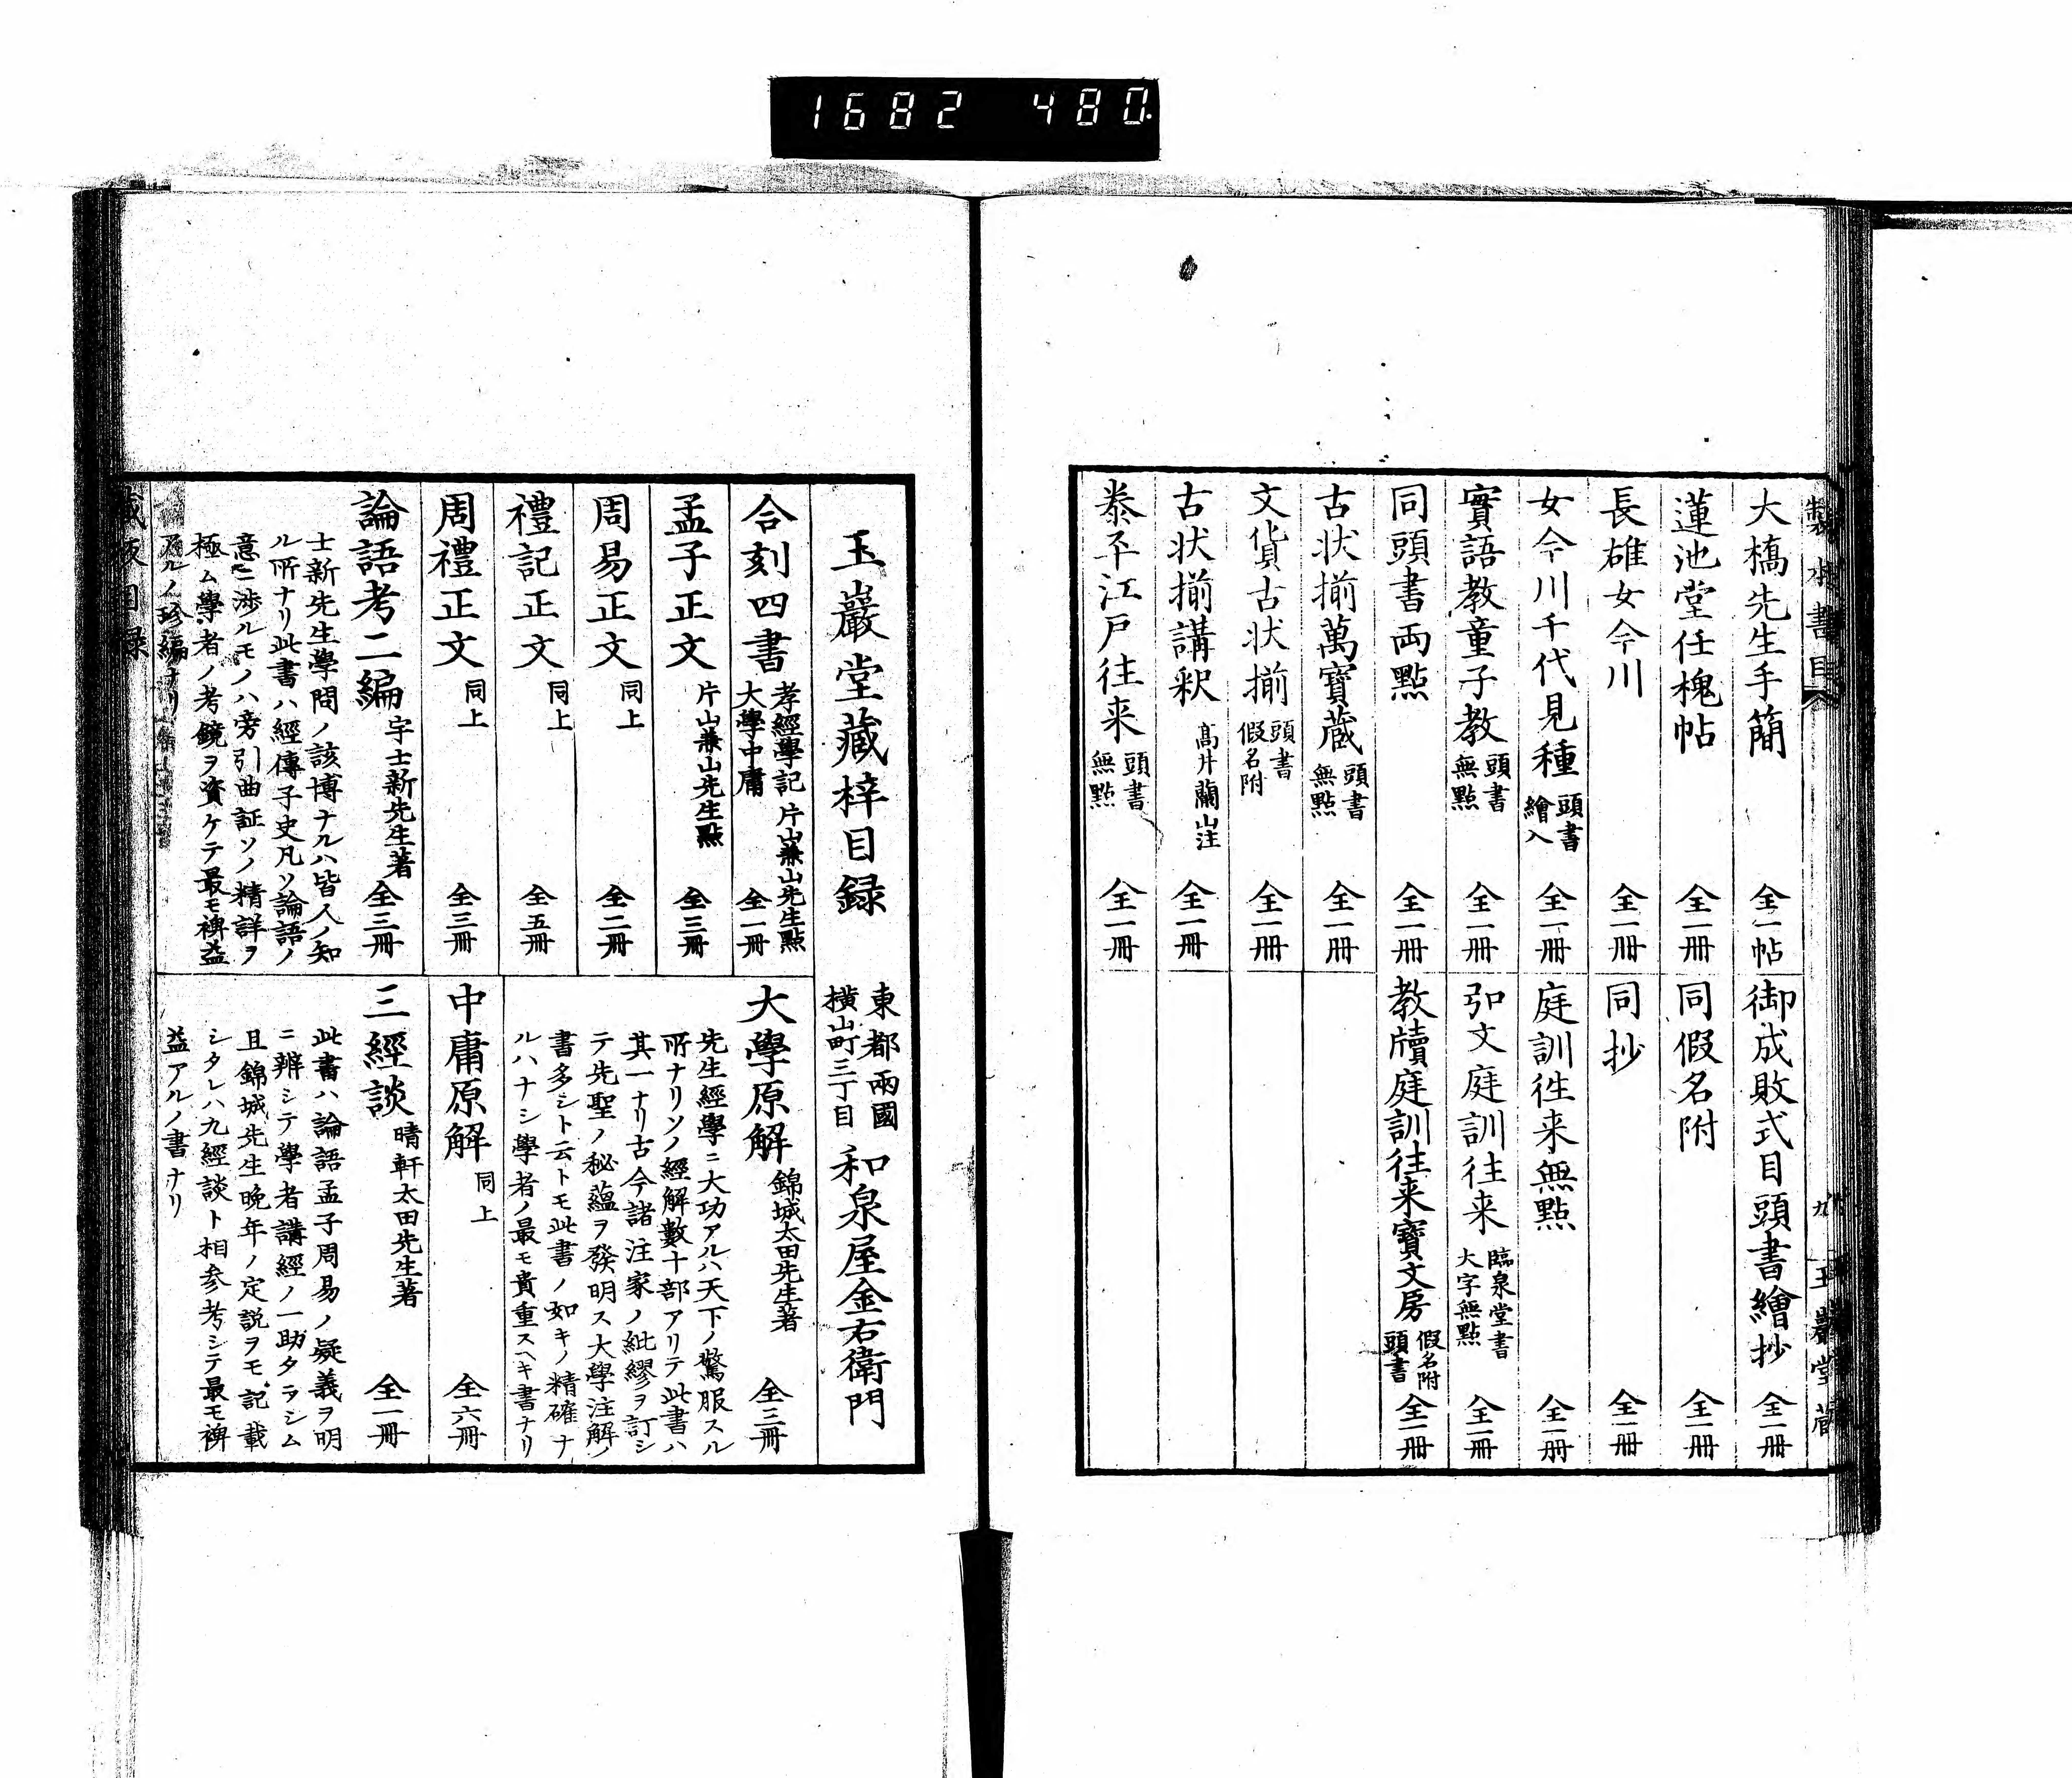 1682 480
大橋先生手簡 全一帖
蓮池堂任槐帖 全一冊
長雄女今川 全一冊
女今川千代見種 頭書繪入 全一冊
實語教童子教 頭書無點 全一冊
同頭書両點 全一冊
古状揃萬寳蔵 頭書無點 全一冊
文貨古状揃 頭書假名附 全一冊
古状揃講釈 髙井蘭山注 全一冊
泰平江戸往来 頭書無點 全一冊
御成敗式目頭書繪抄 全一冊
同假名附 全一冊
同抄 全一冊
庭訓往来無點 全一冊
弘文庭訓往来 臨泉堂書大字無點 全一冊
教牘庭訓往来寳文房 假名附頭書 全一冊
玉巖堂蔵
玉巖堂藏梓目録
東都兩國
横山町三丁目
和泉屋金右衛門
合刻四書 孝經學記大學中庸 片山兼山先生點 全一冊
孟子正文 片山兼山先生點 全三冊
周易正文 同上 全二冊
禮記正文 同上 全五冊
周禮正文 同上 全三冊
論語考二編 宇士新先生著 全三冊
士新先生學問ノ該博ナルハ皆人ノ知
ル所ナリ此書ハ經傳子史凡ソ論語ノ
意ニ渉ルモノハ旁引曲証ソノ精詳ヲ
極ム學者ノ考鏡ヲ資ケテ最モ裨益
アルノ珍編ナリ
大學原解 錦城太田先生著 全三冊
先生經學ニ大功アルハ天下ノ驚服スル
所ナリソノ經解數十部アリテ此書ハ
其一ナリ古今諸注家ノ紕繆ヲ訂シ
テ先聖ノ秘蘊ヲ發明ス大學注解ノ
書多シト云トモ此書ノ如キノ精確ナ
ルハナシ學者ノ最モ貴重スヘキ書ナリ
中庸原解 同上 全六冊
三經談 晴軒太田先生著 全一冊
此書ハ論語孟子周易ノ疑義ヲ明
ニ辨シテ學者講經ノ一助タラシム
且錦城先生晩年ノ定説ヲモ記載
シタレハ九經談ト相参考シテ最モ裨
益アルノ書ナリ